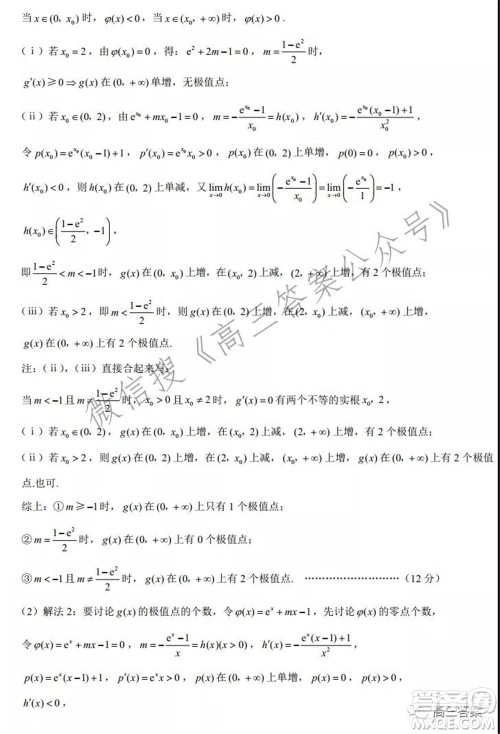 当 x∈(0, x₀) 时，φ(x)<0，当 x∈(x₀, +∞) 时，φ(x)>0．
（ⅰ）若 x₀=2，由 φ(x₀)=0，得：e²+2m-1=0，m=(1-e²)/2 时，
g′(x)≥0⇒g(x) 在 (0, +∞) 单增，无极值点；
（ⅱ）若 x₀∈(0, 2)，由 e^(x₀)+mx₀-1=0，m=-(e^(x₀)-1)/x₀=h(x₀)，h′(x₀)=-(e^(x₀)(x₀-1)+1)/x₀²，
令 p(x₀)=e^(x₀)(x₀-1)+1，p′(x₀)=e^(x₀)x₀>0，p(x₀) 在 (0, 2) 上单增，p(0)=0，p(x₀)>0，
h′(x₀)<0，则 h(x₀) 在 (0, 2) 上单减，又 lim(x→0) h(x₀)=lim(x→0)(-(e^(x₀)-1)/x₀)=lim(x→0)(-e^(x₀)/1)=-1，
h(x₀)∈((1-e²)/2, -1)，
即 (1-e²)/2<m<-1 时，g(x) 在 (0, x₀) 上增，在 (x₀, 2) 上减，(2, +∞) 上增，有 2 个极值点；
（ⅲ）若 x₀>2，即 m<(1-e²)/2 时，则 g(x) 在 (0, 2) 上增，在 (2, x₀) 上减，(x₀, +∞) 上增，
g(x) 在 (0, +∞) 上有 2 个极值点.
注：（ⅱ），（ⅲ）直接合起来写：
当 m<-1 且 m≠(1-e²)/2 时，x₀>0 且 x₀≠2 时，g′(x)=0 有两个不等的实根 x₀，2，
（ⅰ）若 x₀∈(0, 2)，g(x) 在 (0, x₀) 上增，在 (x₀, 2) 上减，(2, +∞) 上增，有 2 个极值点；
（ⅱ）若 x₀>2，则 g(x) 在 (0, 2) 上增，在 (2, x₀) 上减，(x₀, +∞) 上增，g(x) 在 (0, +∞) 上有 2 个极值
点.也可.
综上：①m≥-1 时，g(x) 在 (0, +∞) 上只有 1 个极值点；
②m=(1-e²)/2 时，g(x) 在 (0, +∞) 上有 0 个极值点；
③m<-1 且 m≠(1-e²)/2 时，g(x) 在 (0, +∞) 上有 2 个极值点. ………………（12 分）
（2）解法 2：要讨论 g(x) 的极值点的个数，令 φ(x)=eˣ+mx-1，先讨论 φ(x) 的零点个数，
令 φ(x)=eˣ+mx-1=0，m=-(eˣ-1)/x=h(x)(x>0)，h′(x)=-(eˣ(x-1)+1)/x²，
p(x)=eˣ(x-1)+1，p′(x)=eˣx>0，p(x) 在 (0, +∞) 上单增，p(0)=0，p(x)>0，
h′(x)<0，
微信搜《高三答案公众号》
高三答案